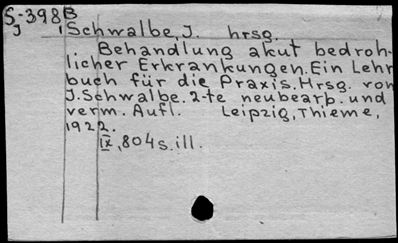 S-398B
Schwalbe, J. hrsg.
Behandlung akut bedroh-
licher Erkrankungen. Ein Lehr
buch für die Praxis. Hrsg. von
J. Schwalbe. 2-te neubearb. und
verm. Aufl. Leipzig, Thieme,
1922.
IX, 804 s. ill.